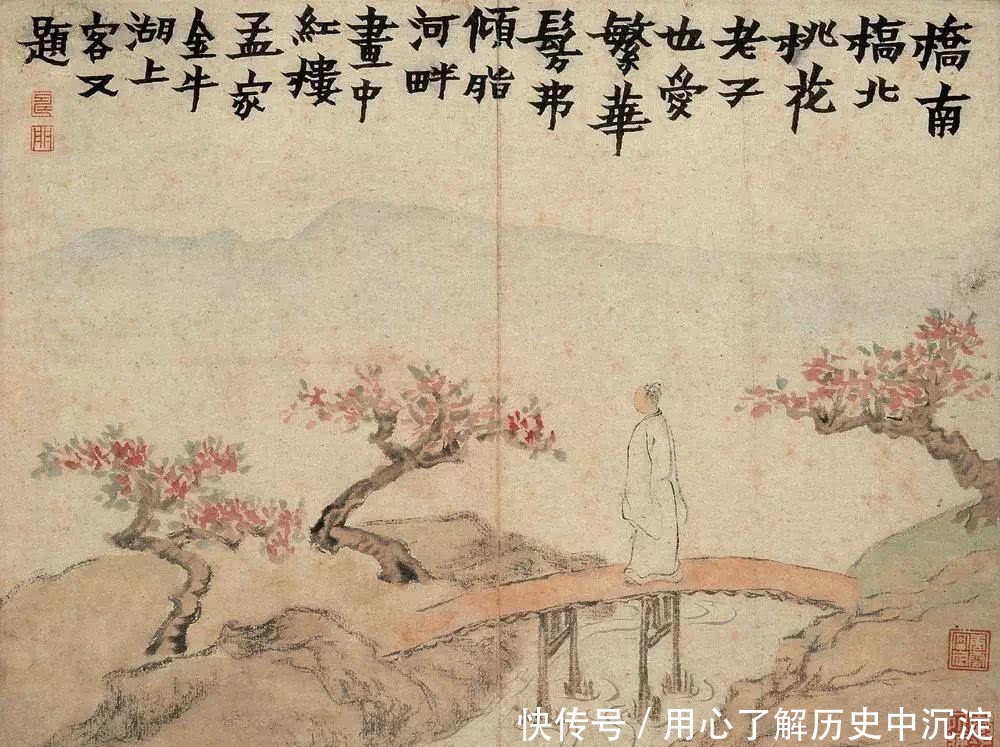 橋南
槁北
桃花
老子
也愛
繁華
髣弗
傾脂
河畔
畫中
紅樓
孟家
金牛
湖上
客又
題
快传号 / 用心了解历史中沉淀